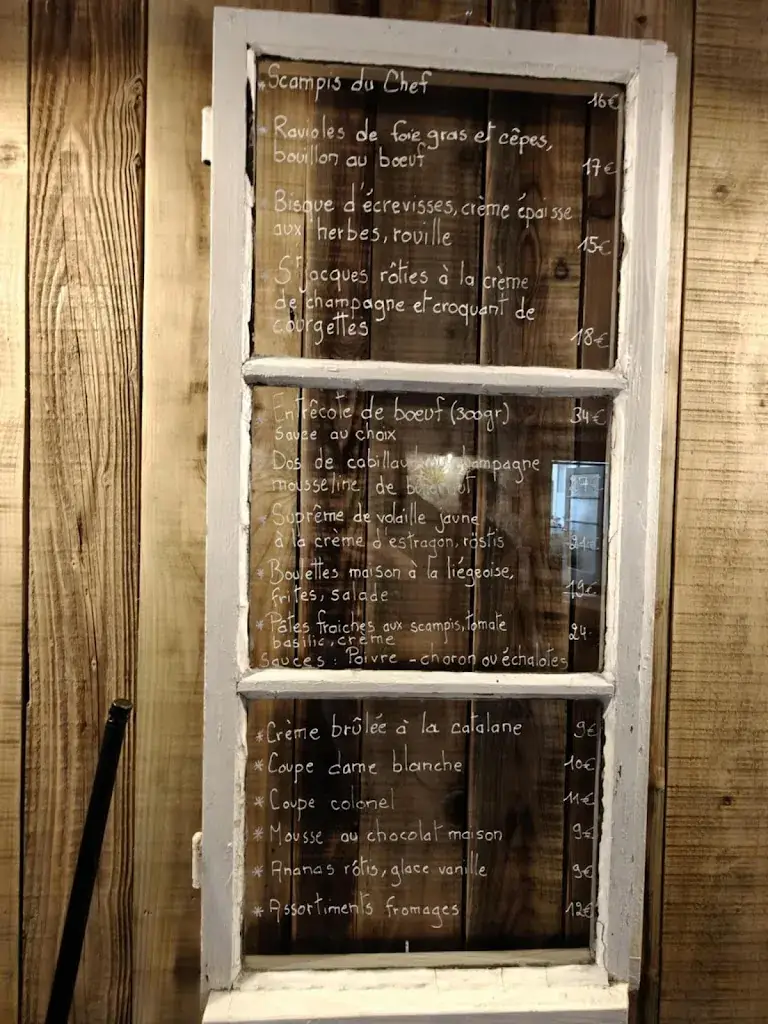 * Scampis du Chef
16€
* Ravioles de foie gras et cêpes,
bouillon au boeuf
17€
Bisque d'écrevisses, crème épaisse
aux herbes, rouille
15€
* St Jacques rôties à la crème
de champagne et croquant de
courgettes
18€
* Entrêcote de boeuf (300gr) 34€
Sauce au choix
Dos de cabillaud champagne
mousseline de
* Suprême de volaille jaune
à la crème d'estragon, röstis
* Boulettes maison à la liégeoise,
frites, salade 19€
* Pâtes fraiches aux scampis, tomate 24
basilic, crème
Sauces : Poivre - choron ou échalotes
* Crème brûlée à la catalane 9€
* Coupe dame blanche 10€
* Coupe colonel 11€
* Mousse au chocolat maison 9€
* Ananas rôtis, glace vanille 9€
* Assortiments fromages 12€